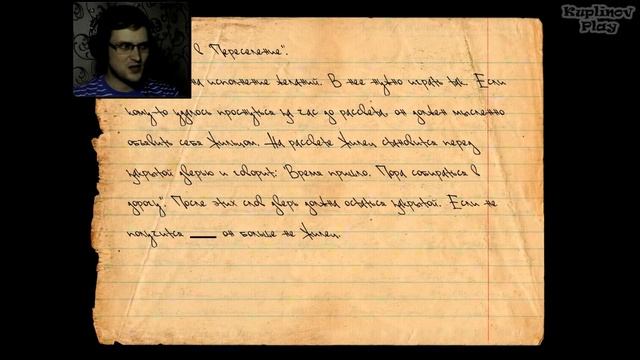 Kuplinov
Play
в "Переселение".
на исполнение желаний. В нее нужно играть так. Если
кому-то удалось проснуться за час до рассвета, он должен мысленно
объявить себя Жильцом. На рассвете Жилец становится перед
закрытой дверью и говорит: Время пришло. Пора собираться в
дорогу". После этих слов дверь должна остаться закрытой. Если не
получится ___ он больше не Жилец.